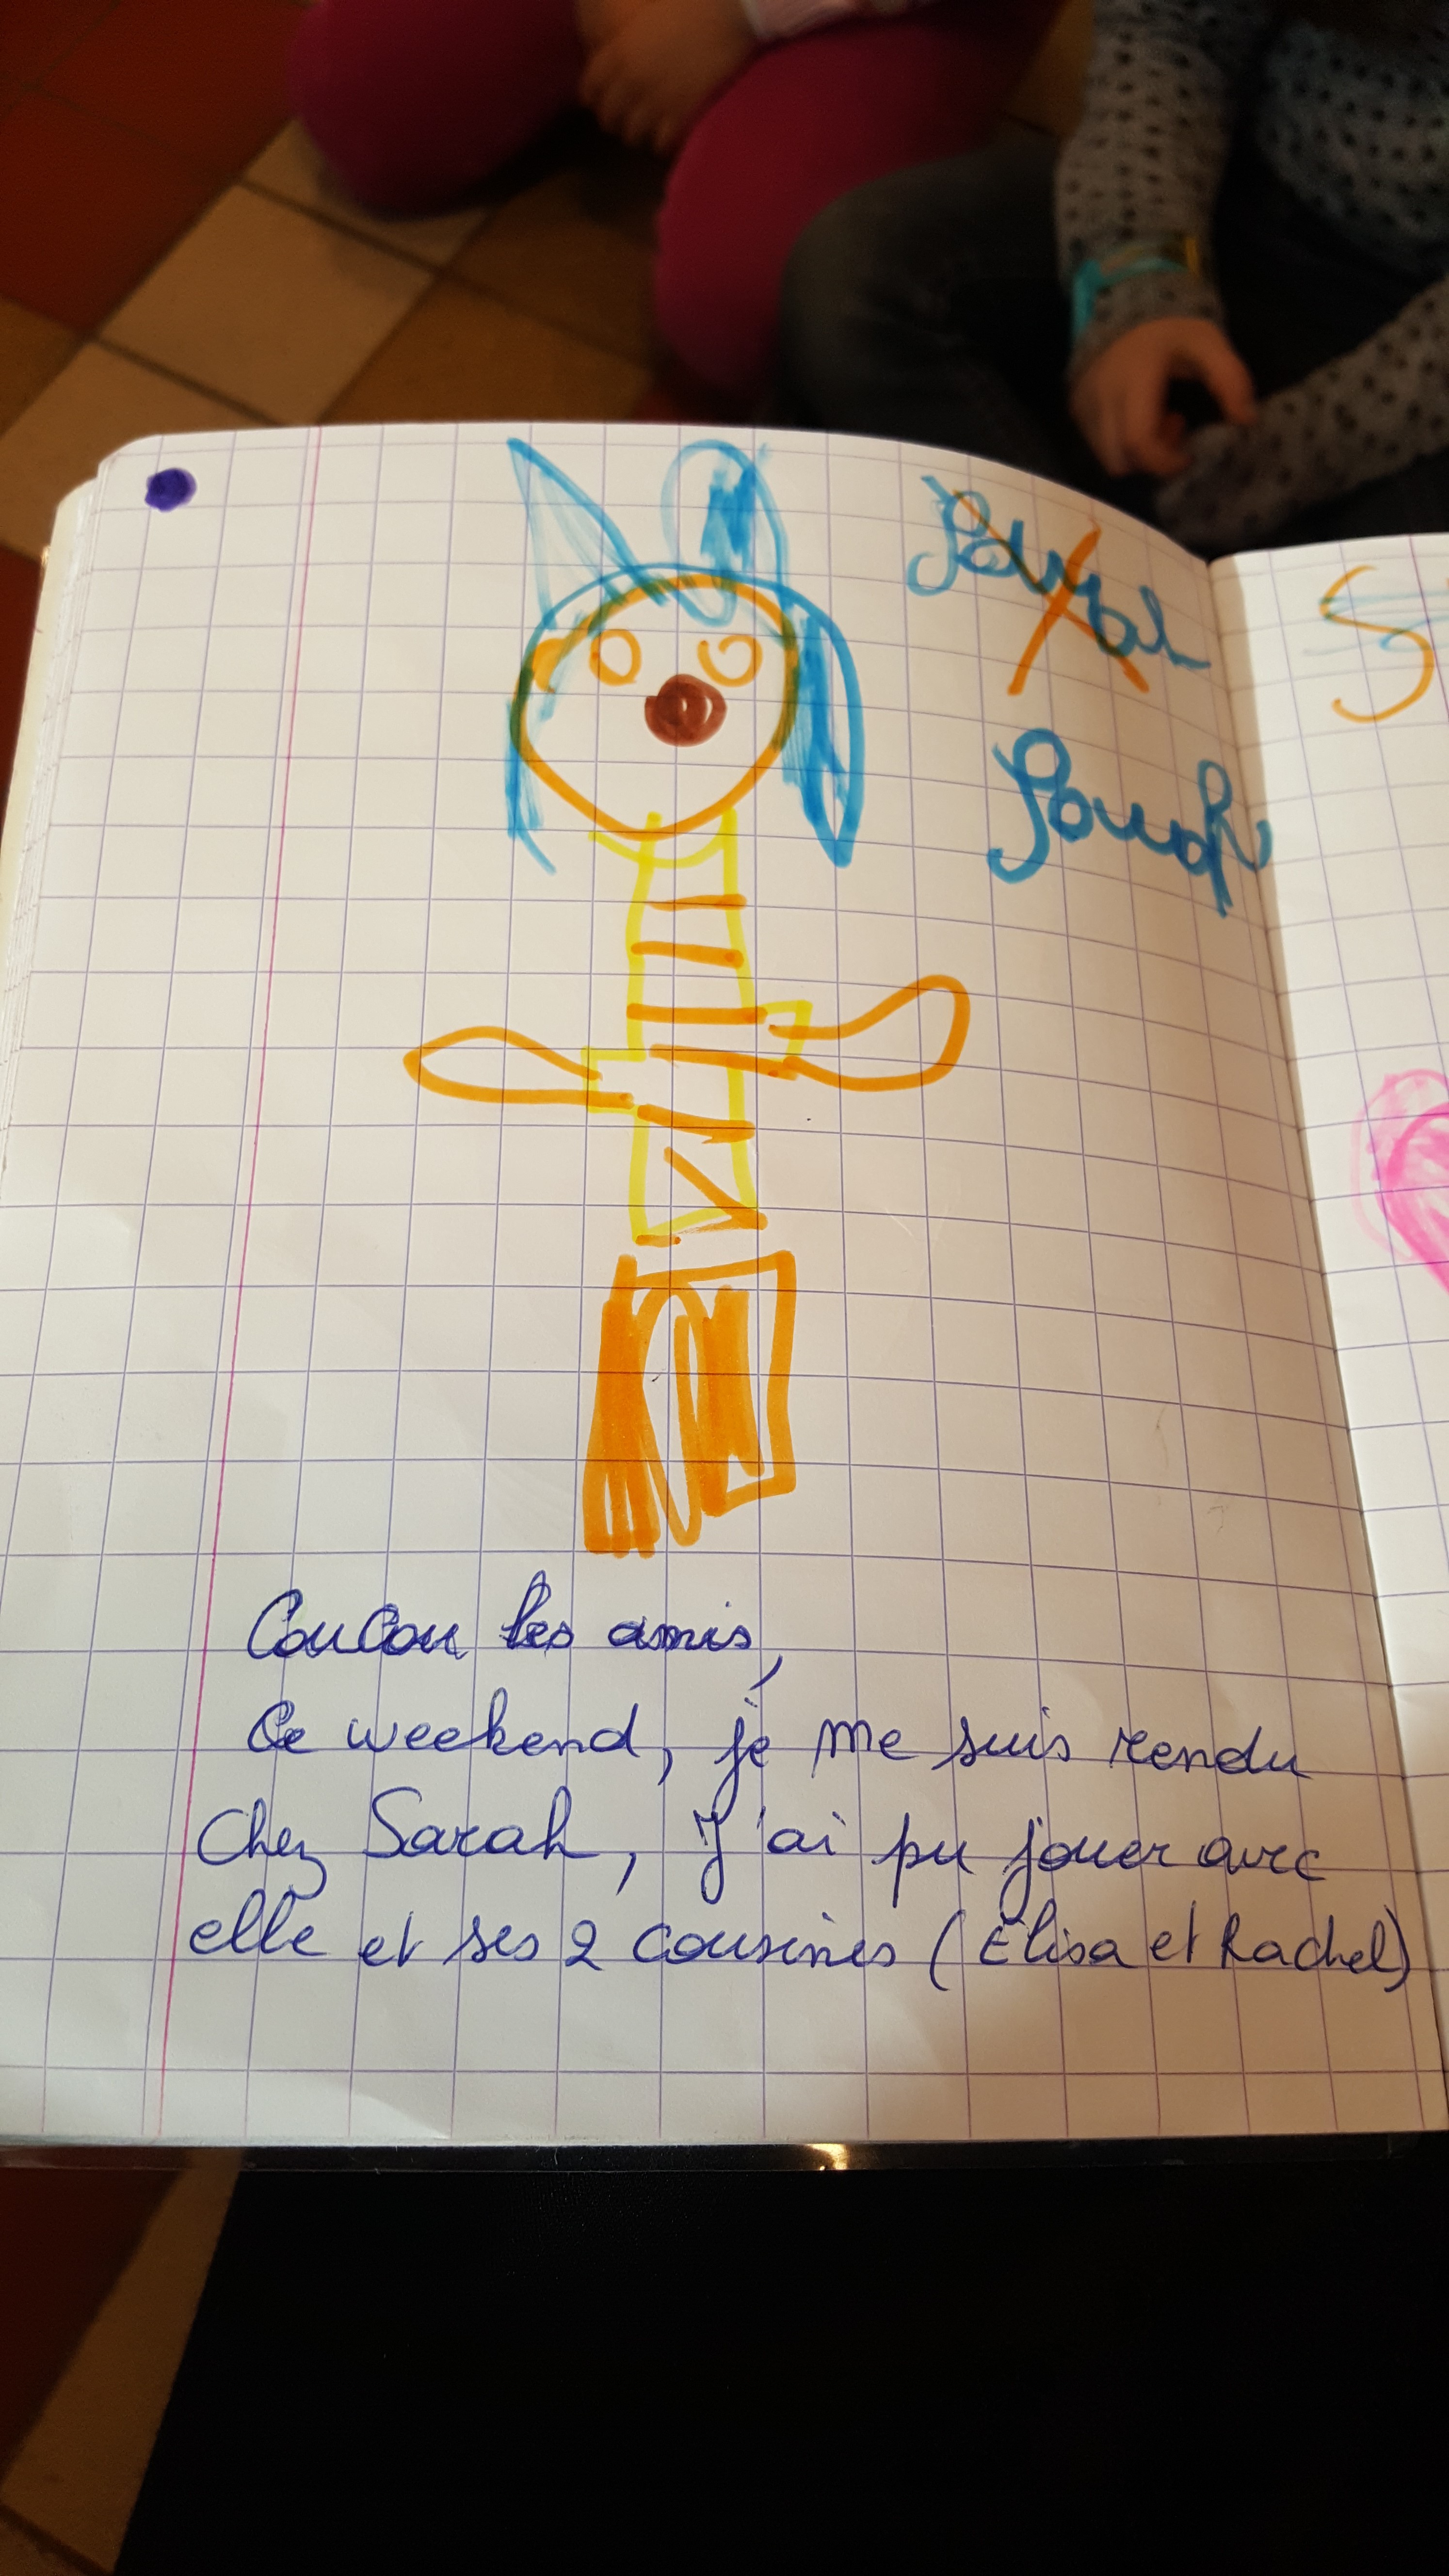 Sarah
Sarah
S
Coucou les amis,
Ce weekend, je me suis rendu
chez Sarah, J'ai pu jouer avec
elle et ses 2 cousines (Elisa et Rachel)